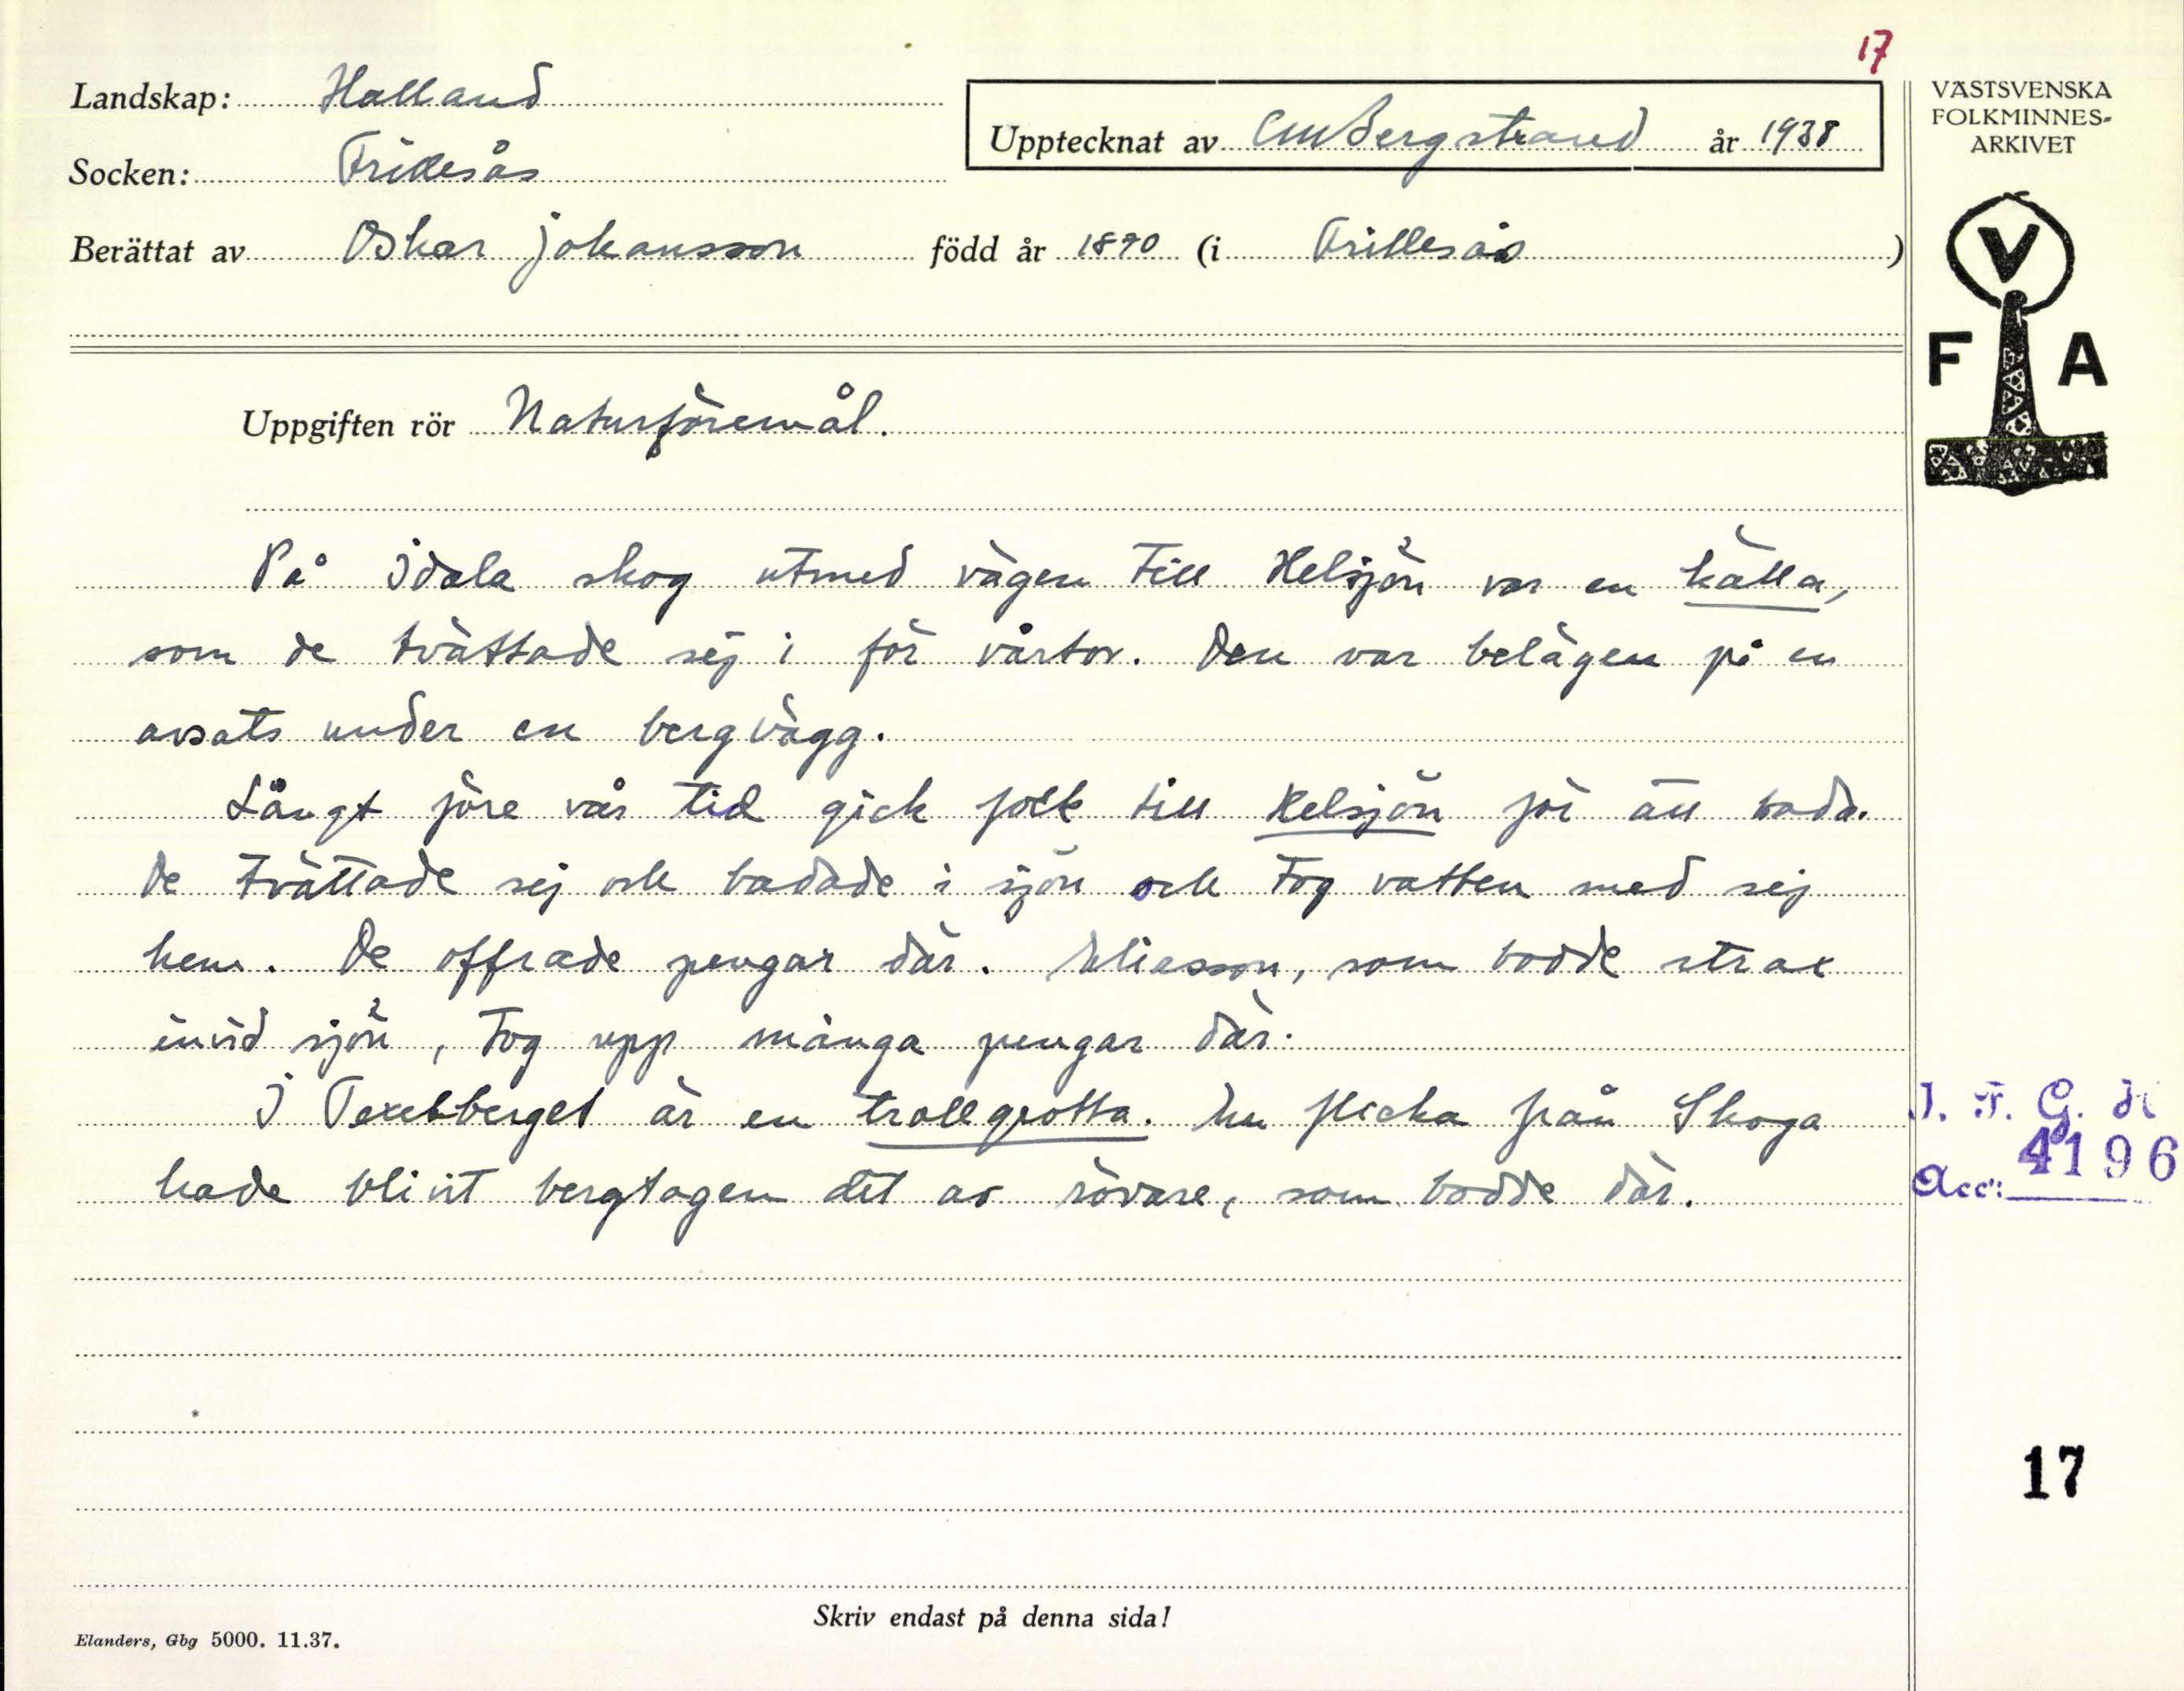 17
Landskap: Halland
Upptecknat av CM Bergstrand år 1938
Socken: Frillesås
Berättat av Oskar Johansson född år 1890 (i Frillesås)
Uppgiften rör Naturföremål.
På Idala skog utmed vägen till Helsjön var en källa,
som de tvättade sej i för vårtor. Den var belägen på en
avsats under en bergvägg.
Långt före vår tid gick folk till Helsjön för att bada.
De tvättade sej och badade i sjön och tog vatten med sej
hem. De offrade pengar där. Eliasson, som bodde strax
invid sjön, tog upp många pengar där.
I berget är en trollgrotta. En flicka från Skoga
hade blivit bergtagen dit av rövare, som bodde där.
Skriv endast på denna sida!
Elanders, Gbg 5000. 11.37.
VÄSTSVENSKA
FOLKMINNES-
ARKIVET
V
F A
I. F. G. H
Acc: 4196
17